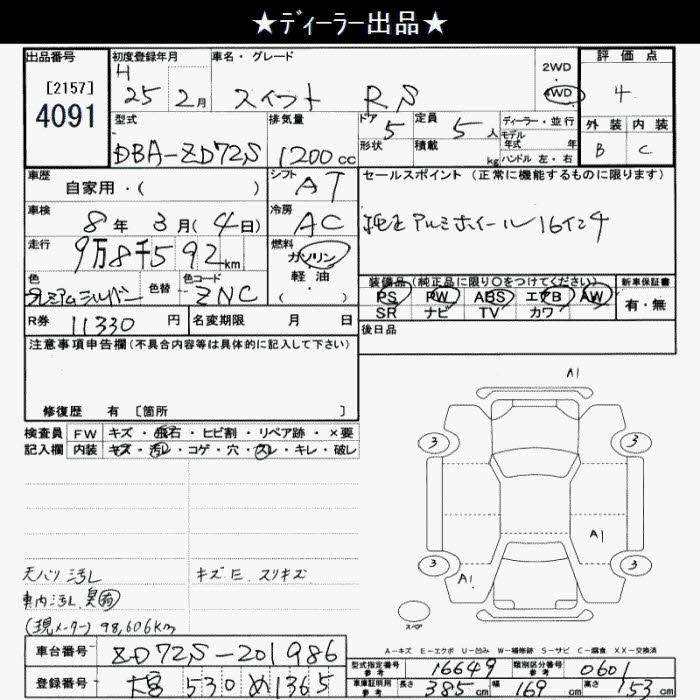 ★ディーラー出品★
出品番号
[2157]
4091
初度登録年月
H
25 2月
車名・グレード
スイフト RS
2WD
4WD
評価点
4
外装 内装
B C
型式
DBA-ZD72S
排気量
1200cc
ドア
5
形状
定員
5人
積載
kg
ディーラー・並行
モデル
年式 年
ハンドル 左・右
車歴
自家用・( )
シフト
AT
セールスポイント(正常に機能するものに限ります)
純正アルミホイール16インチ
車検
8年 3月(4日)
冷房
AC
走行
9万8千592km
燃料
ガソリン
軽・油
( )
色
プレミアムシルバー
色替
色コード
ZNC
装備品(純正品に限り○をつけてください)
PS PW ABS エアB AW
SR ナビ TV カワ
新車保証書
有・無
R券 11330円
名変期限 月 日
後日品
注意事項申告欄(不具合内容等は具体的に記入して下さい)
修復歴 有 [箇所 ]
検査員
記入欄
FW キズ・飛石・ヒビ割・リペア跡・×要
内装 キズ・汚レ・コゲ・穴・スレ・キレ・破レ
天バリ汚レ
キズE、スリキズ
車内汚レ、臭
(現メーター) 98,606km
A1
3
3
A1
3
3
A1
スペア
A-キズ E-エクボ U-凹み W-補修跡 S-サビ C-腐食 XX-交換済
車台番号 ZD72S-201986
登録番号 大宮 530 め1365
型式指定番号
参考
16649
類別区分番号
参考
0601
車庫証明用
参考
長さ 385cm 幅 169cm 高さ 153cm